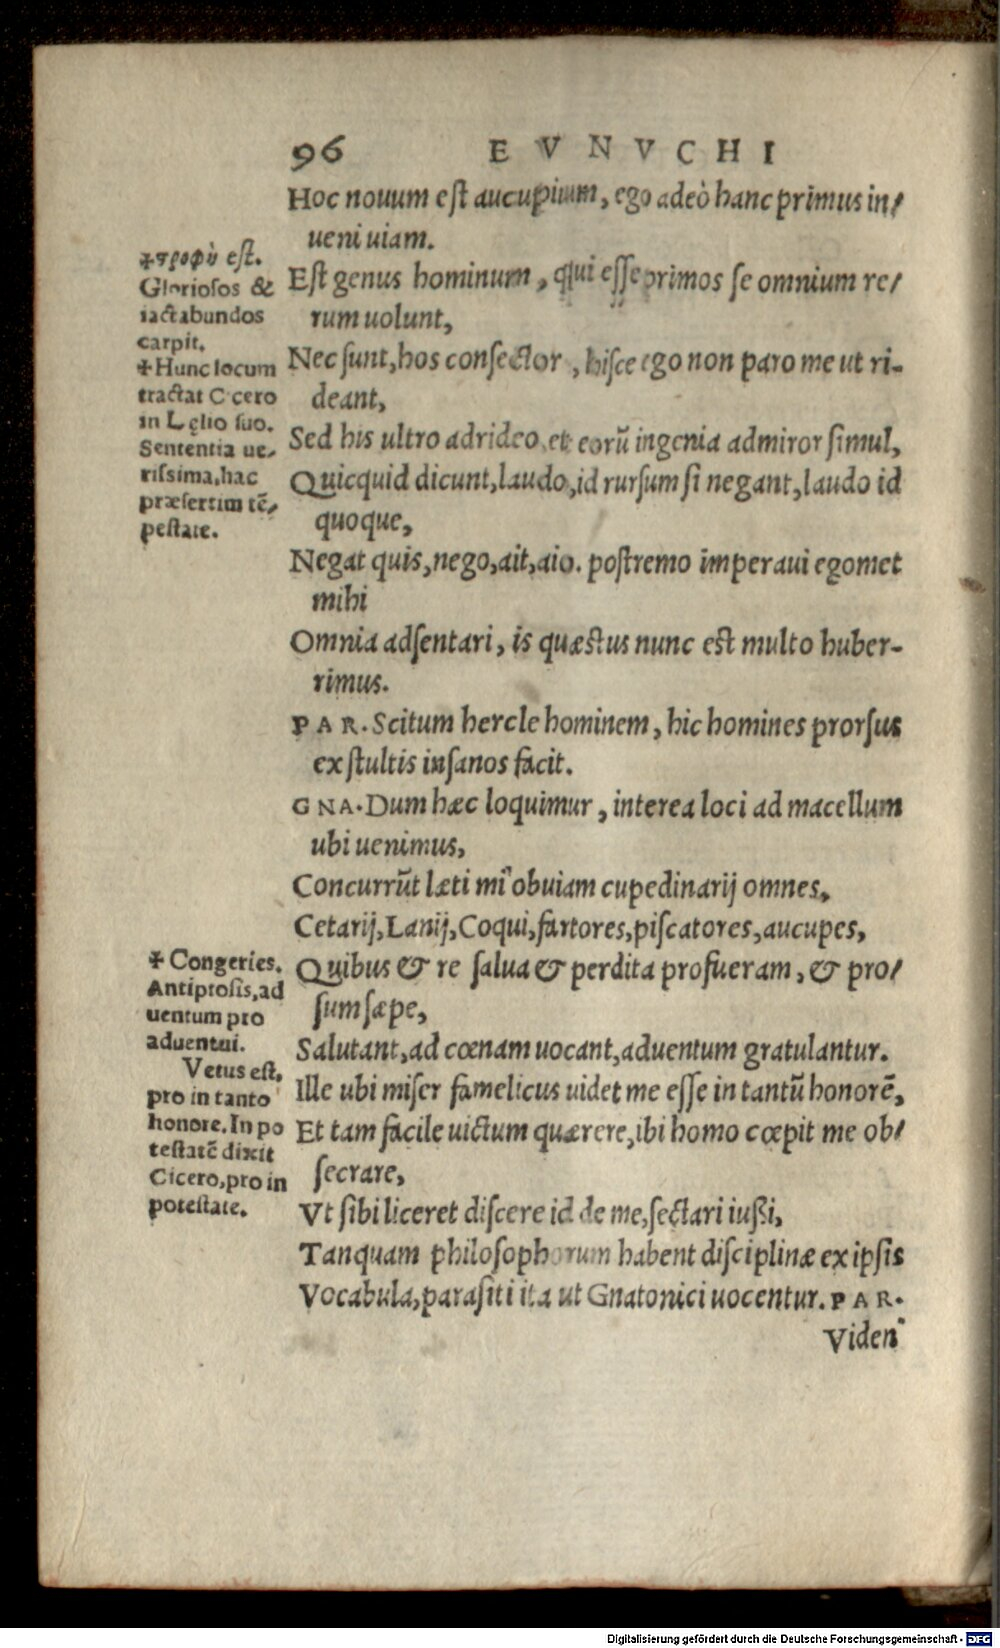 96 EVNVCHI
Hoc nouum est aucupium, ego adeò hanc primus in/
ueni uiam.
Est genus hominum, qui esse primos se omnium re/
rum uolunt,
Nec sunt, hos consector, hisce ego non paro me ut ri-
deant,
Sed his ultro adrideo et eorũ ingenia admiror simul,
Quicquid dicunt, laudo, id rursum si negant, laudo id
quoque,
Negat quis, nego, ait, aio. postremo imperaui egomet
mihi
Omnia adsentari, is quæstus nunc est multo huber-
rimus.
PAR. Scitum hercle hominem, hic homines prorsus
ex stultis insanos facit.
GNA. Dum hæc loquimur, interea loci ad macellum
ubi uenimus,
Concurrũt læti mi obuiam cupedinarij omnes,
Cetarij, Lanij, Coqui, fartores, piscatores, aucupes,
Quibus & re salua & perdita profueram, & pro/
sum sæpe,
Salutant, ad cœnam uocant, aduentum gratulantur.
Ille ubi miser famelicus uidet me esse in tantũ honorẽ,
Et tam facile uictum quærere, ibi homo cœpit me ob/
secrare,
Vt sibi liceret discere id de me, sectari iußi,
Tanquam philosophorum habent disciplinæ ex ipsis
Vocabula, parasiti ita ut Gnatonici uocentur. PAR.
Viden
✢ est.
Gloriosos &
iactabundos
carpit.
✢ Hunc locum
tractat Cicero
in Lęlio suo.
Sententia ue/
rissima, hac
præsertim tẽ/
pestate.
✢ Congeries.
Antiptosis, ad
uentum pro
aduentui.
Vetus est,
pro in tanto
honore. In po
testatẽ dixit
Cicero, pro in
potestate.
Digitalisierung gefördert durch die Deutsche Forschungsgemeinschaft - DFG